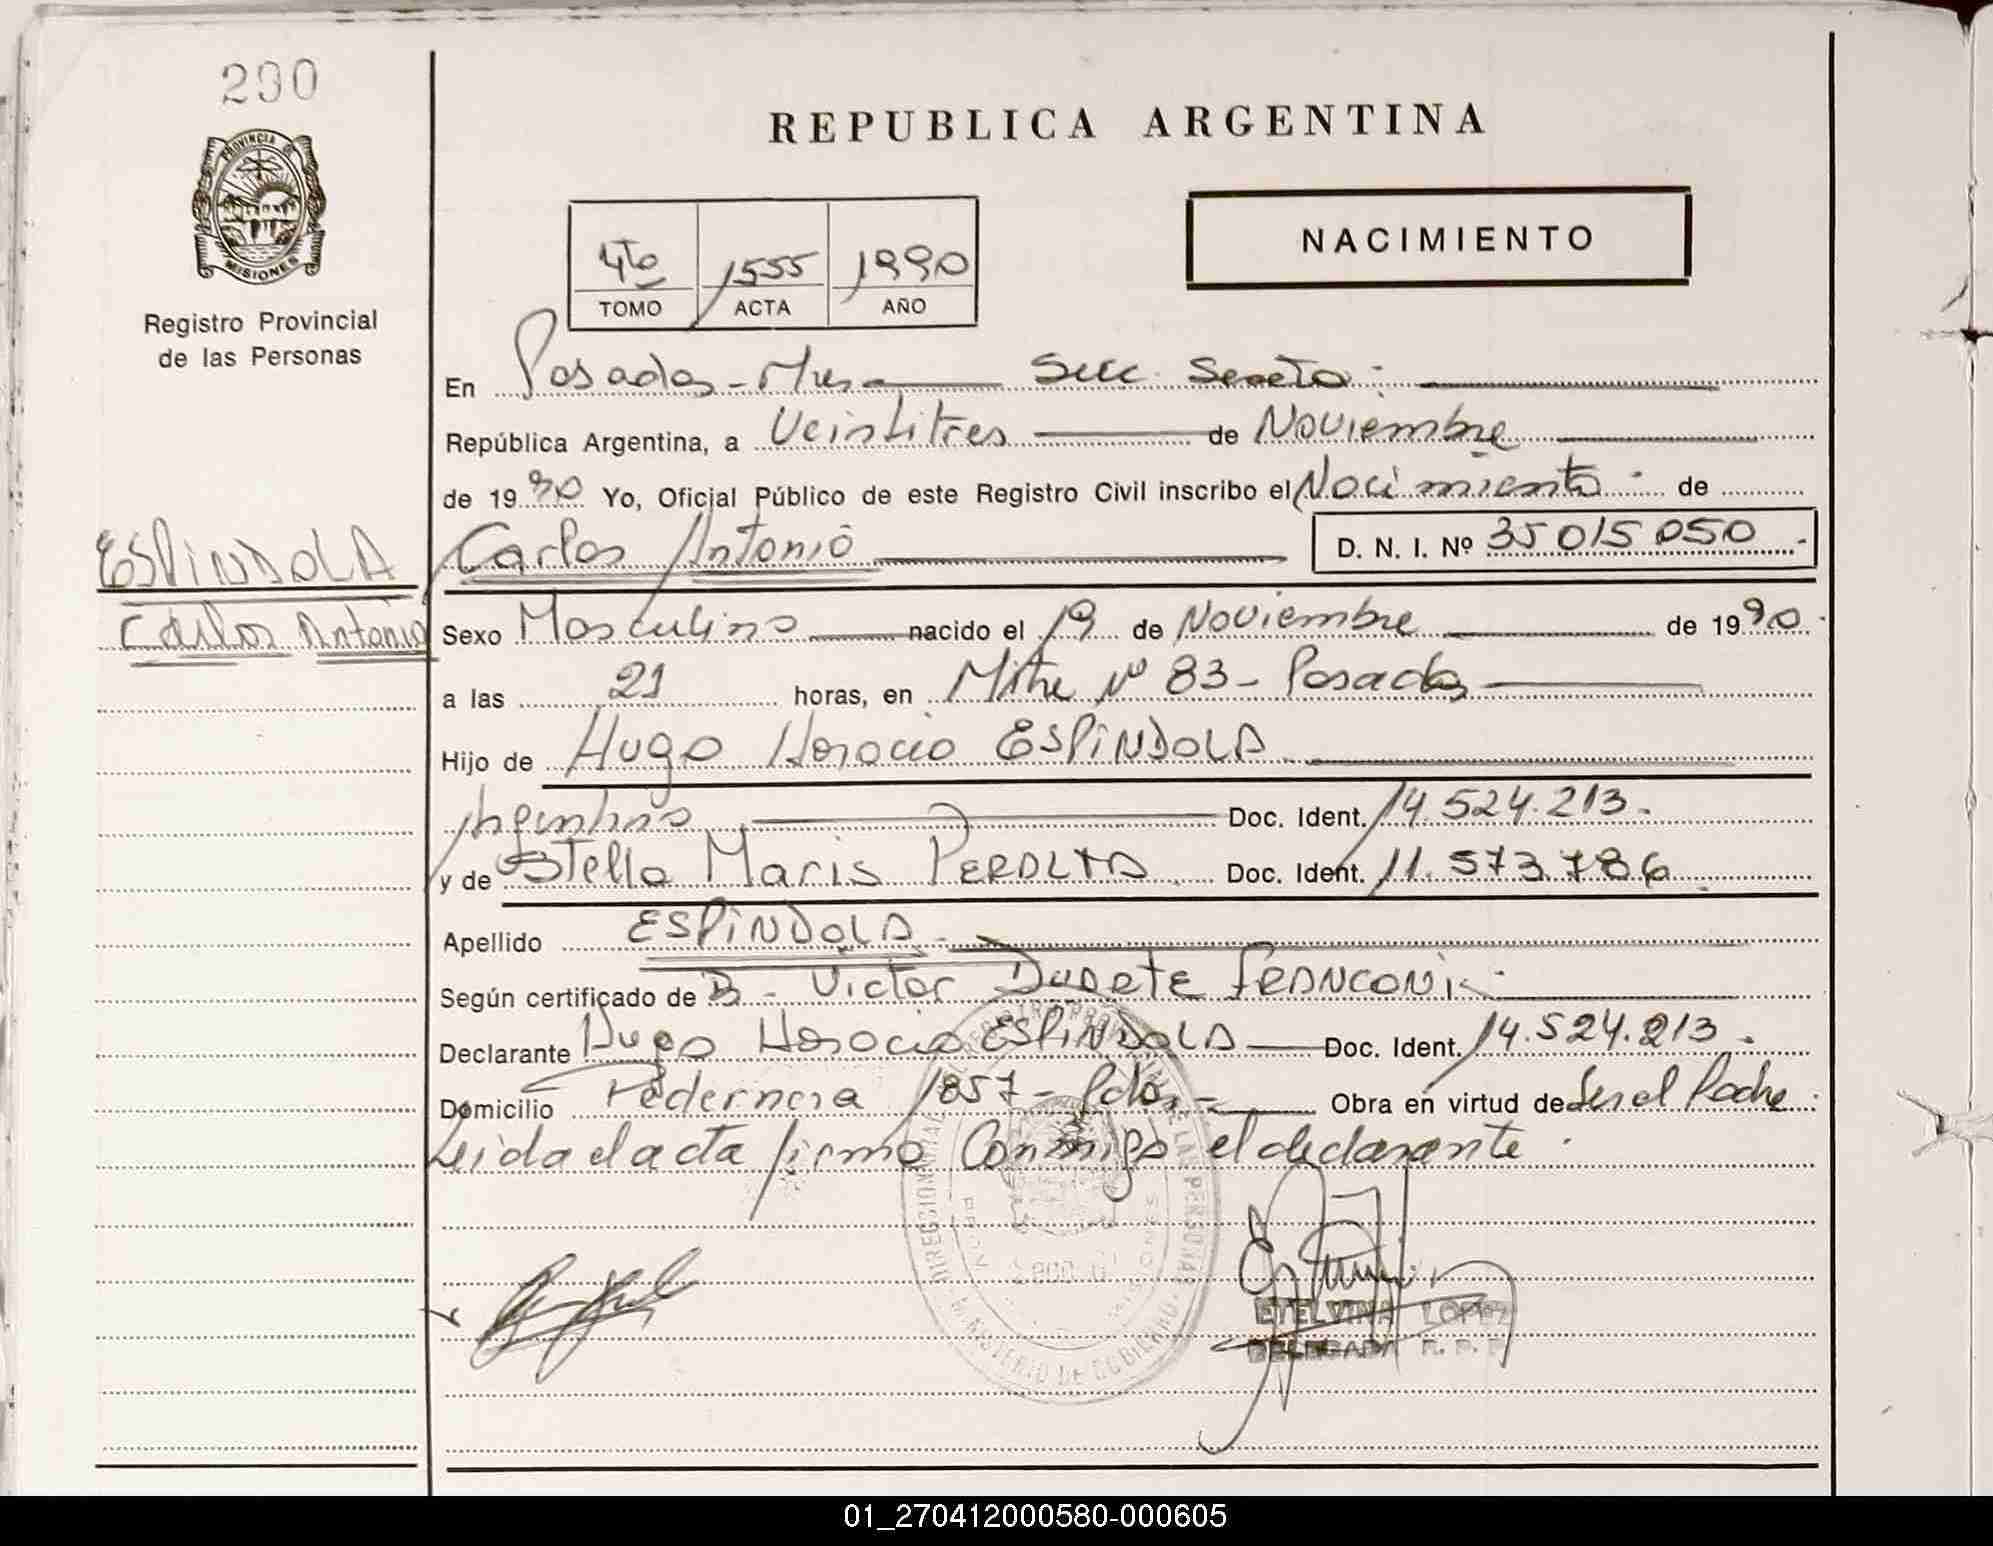 290
PROVINCIA DE
MISIONES
Registro Provincial
de las Personas
REPUBLICA ARGENTINA
4to 1555 1990
TOMO ACTA AÑO
NACIMIENTO
En Posadas - Mnes - Secc. Sexta
República Argentina, a Veintitres de Noviembre
de 1990 Yo, Oficial Público de este Registro Civil inscribo el Nacimiento de
ESPINDOLA
Carlos Antonio
Carlos Antonio D. N. I. Nº 35015050
Sexo Masculino nacido el 19 de Noviembre de 1990
a las 21 horas, en Mitre Nº 83 - Posadas
Hijo de Hugo Horacio ESPINDOLA
Argentino Doc. Ident. 14.524.213.
y de Stella Maris PERALTA Doc. Ident. 11.573.786
Apellido ESPINDOLA
Según certificado de Victor Duarte FRANCONI
Declarante Hugo Horacio ESPINDOLA Doc. Ident. 14.524.213
Domicilio Pedernera 1857 - Pdas - Obra en virtud de Ser el Padre
Leida el acta firma Conmigo el declarante.
DIRECCION REGISTRO PROVINCIAL DE LAS PERSONAS
MINISTERIO DE GOBIERNO
ETELVINA LOPEZ
DELEGADA R. P. P.
01_270412000580-000605